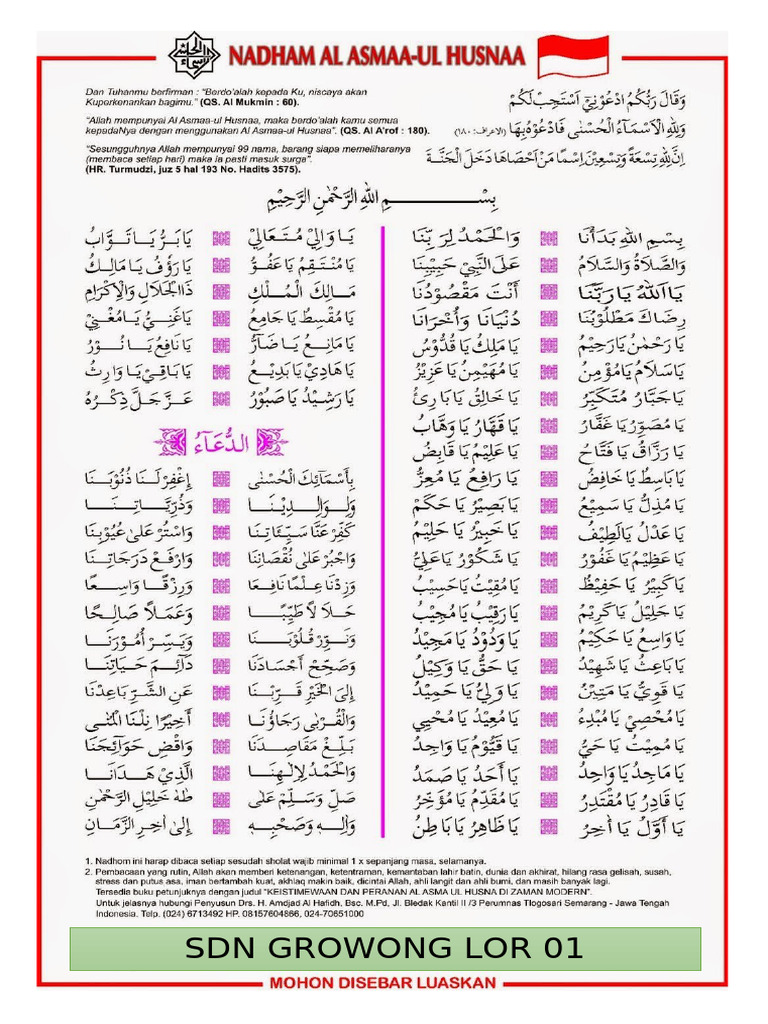 NADHAM AL ASMAA-UL HUSNAA
Dan Tuhanmu berfirman : "Berdo'alah kepada Ku, niscaya akan
Kuperkenankan bagimu." (QS. Al Mukmin : 60).
"Allah mempunyai Al Asmaa-ul Husnaa, maka berdo'alah kamu semua
kepadaNya dengan menggunakan Al Asmaa-ul Husnaa". (QS. Al A'rof : 180).
"Sesungguhnya Allah mempunyai 99 nama, barang siapa memeliharanya
(membaca setiap hari) maka ia pasti masuk surga".
(HR. Turmudzi, juz 5 hal 193 No. Hadits 3575).
وَقَالَ رَبُّكُمُ ادْعُوْنِيْٓ اَسْتَجِبْ لَكُمْ
وَلِلّٰهِ الْاَسْمَآءُ الْحُسْنٰى فَادْعُوْهُ بِهَا (الاعراف: ١٨٠)
اِنَّ لِلّٰهِ تِسْعَةً وَتِسْعِيْنَ اِسْمًا مَنْ اَحْصَاهَا دَخَلَ الْجَنَّةَ
بِسْمِ اللهِ الرَّحْمٰنِ الرَّحِيْمِ
بِسْمِ اللهِ بَدَأْنَا وَالْحَمْدُ لِرَبِّنَا
وَالصَّلَاةُ وَالسَّلَامُ عَلَى النَّبِيْ حَبِيْبِنَا
يَا اَللهُ يَا رَبَّنَا أَنْتَ مَقْصُوْدُنَا
رِضَاكَ مَطْلُوْبُنَا دُنْيَانَا وَأُخْرَانَا
يَا رَحْمٰنُ يَا رَحِيْمُ يَا مَلِكُ يَا قُدُّوْسُ
يَا سَلَامُ يَا مُؤْمِنُ يَا مُهَيْمِنُ يَا عَزِيْزُ
يَا جَبَّارُ مُتَكَبِّرُ يَا خَالِقُ يَا بَارِئُ
يَا مُصَوِّرُ يَا غَفَّارُ يَا قَهَّارُ يَا وَهَّابُ
يَا رَزَّاقُ يَا فَتَّاحُ يَا عَلِيْمُ يَا قَابِضُ
يَا بَاسِطُ يَا خَافِضُ يَا رَافِعُ يَا مُعِزُّ
يَا مُذِلُّ يَا سَمِيْعُ يَا بَصِيْرُ يَا حَكَمْ
يَا عَدْلُ يَا لَطِيْفُ يَا خَبِيْرُ يَا حَلِيْمُ
يَا عَظِيْمُ يَا غَفُوْرُ يَا شَكُوْرُ يَا عَلِيُّ
يَا كَبِيْرُ يَا حَفِيْظُ يَا مُقِيْتُ يَا حَسِيْبُ
يَا جَلِيْلُ يَا كَرِيْمُ يَا رَقِيْبُ يَا مُجِيْبُ
يَا وَاسِعُ يَا حَكِيْمُ يَا وَدُوْدُ يَا مَجِيْدُ
يَا بَاعِثُ يَا شَهِيْدُ يَا حَقُّ يَا وَكِيْلُ
يَا قَوِيُّ يَا مَتِيْنُ يَا وَلِيُّ يَا حَمِيْدُ
يَا مُحْصِيْ يَا مُبْدِءُ يَا مُعِيْدُ يَا مُحْيِي
يَا مُمِيْتُ يَا حَيُّ يَا قَيُّوْمُ يَا وَاجِدُ
يَا مَاجِدُ يَا وَاحِدُ يَا أَحَدُ يَا صَمَدُ
يَا قَادِرُ يَا مُقْتَدِرُ يَا مُقَدِّمُ يَا مُؤَخِّرُ
يَا أَوَّلُ يَا أٰخِرُ يَا ظَاهِرُ يَا بَاطِنُ
يَا وَالِيْ مُتَعَالِيْ يَا بَرُّ يَا تَوَّابُ
يَا مُنْتَقِمُ يَا عَفُوُّ يَا رَؤُفُ يَا مَالِكُ
مَالِكَ الْمُلْكِ ذَا الْجَلَالِ وَالْاِكْرَامِ
يَا مُقْسِطُ يَا جَامِعُ يَا غَنِيُّ يَا مُغْنِيْ
يَا مَانِعُ يَا ضَآرُّ يَا نَافِعُ يَا نُوْرُ
يَا هَادِيْ يَا بَدِيْعُ يَا بَاقِيْ يَا وَارِثُ
يَا رَشِيْدُ يَا صَبُوْرُ عَزَّ جَلَّ ذِكْرُهُ
الدُّعَاءُ
بِأَسْمَائِكَ الْحُسْنٰى إِغْفِرْ لَنَا ذُنُوْبَنَا
وَلِوَالِدِيْنَا وَذُرِّيَّاتِنَا
كَفِّرْ عَنَّا سَيِّئَاتِنَا وَاسْتُرْ عَلٰى عُيُوْبِنَا
وَاجْبُرْ عَلٰى نُقْصَانِنَا وَارْفَعْ دَرَجَاتِنَا
وَزِدْنَا عِلْمًا نَافِعَا وَرِزْقًا وَاسِعًا
حَلَالًا طَيِّبًا وَعَمَلًا صَالِحًا
وَنَوِّرْ قُلُوْبَنَا وَيَسِّرْ أُمُوْرَنَا
وَصَحِّحْ أَجْسَادَنَا دَائِمَ حَيَاتِنَا
إِلَى الْخَيْرِ قَرِّبْنَا عَنِ الشَّرِّ بَاعِدْنَا
وَالْقُرْبٰى رَجَاؤُنَا أَخِيْرًا نِلْنَا الْمُنٰى
بَلِّغْ مَقَاصِدَنَا وَاقْضِ حَوَائِجَنَا
وَالْحَمْدُ لِإِلٰهِنَا الَّذِيْ هَدَانَا
صَلِّ وَسَلِّمْ عَلٰى طٰهٰ خَلِيْلِ الرَّحْمٰنِ
وَاٰلِهِ وَصَحْبِهِ إِلٰى أٰخِرِ الزَّمَانِ
1. Nadhom ini harap dibaca setiap sesudah sholat wajib minimal 1 x sepanjang masa, selamanya.
2. Pembacaan yang rutin, Allah akan memberi ketenangan, ketentraman, kemantaban lahir batin, dunia dan akhirat, hilang rasa gelisah, susah,
stress dan putus asa, iman bertambah kuat, akhlaq makin baik, dicintai Allah, ahli langit dan ahli bumi, dan masih banyak lagi.
Tersedia buku petunjuknya dengan judul "KEISTIMEWAAN DAN PERANAN AL ASMA UL HUSNA DI ZAMAN MODERN".
Untuk jelasnya hubungi Penyusun Drs. H. Amdjad Al Hafidh, Bsc. M.Pd, Jl. Bledak Kantil II /3 Perumnas Tlogosari Semarang - Jawa Tengah
Indonesia. Telp. (024) 6713492 HP. 08157604866, 024-70651000
SDN GROWONG LOR 01
MOHON DISEBAR LUASKAN